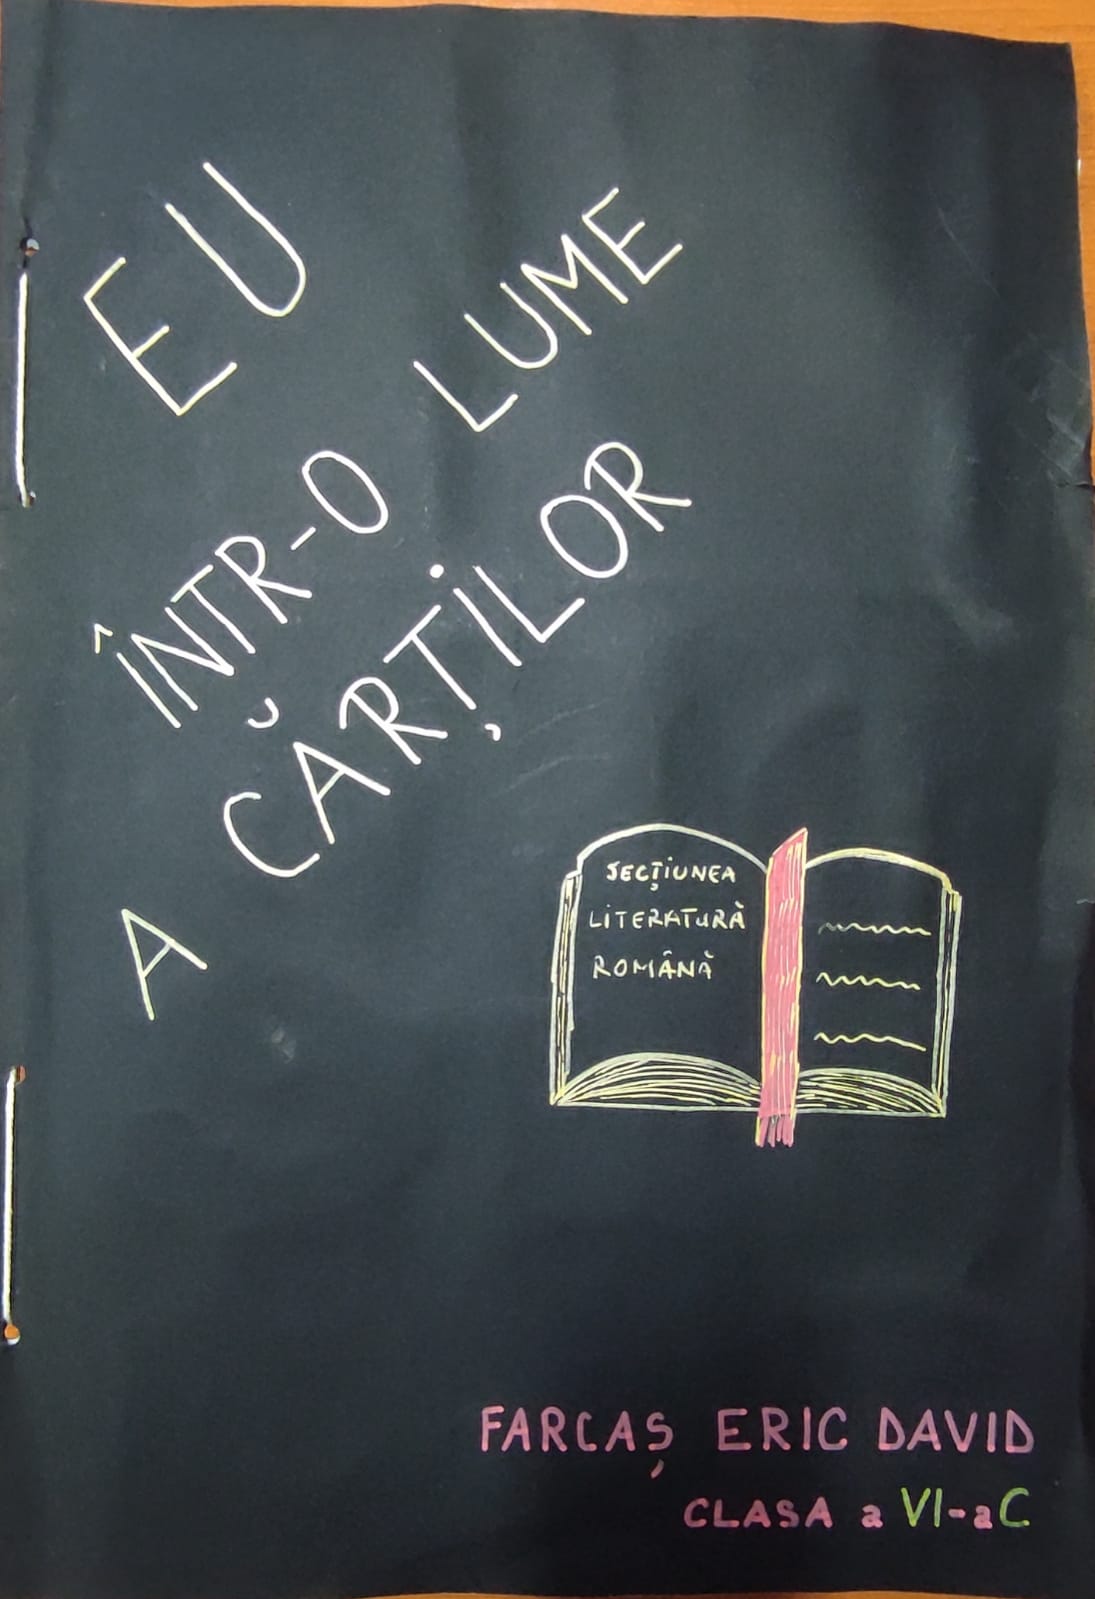 EU
ÎNTR-O LUME
A CĂRȚILOR
SECȚIUNEA
LITERATURĂ
ROMÂNĂ
FARCAȘ ERIC DAVID
CLASA a VI-a C